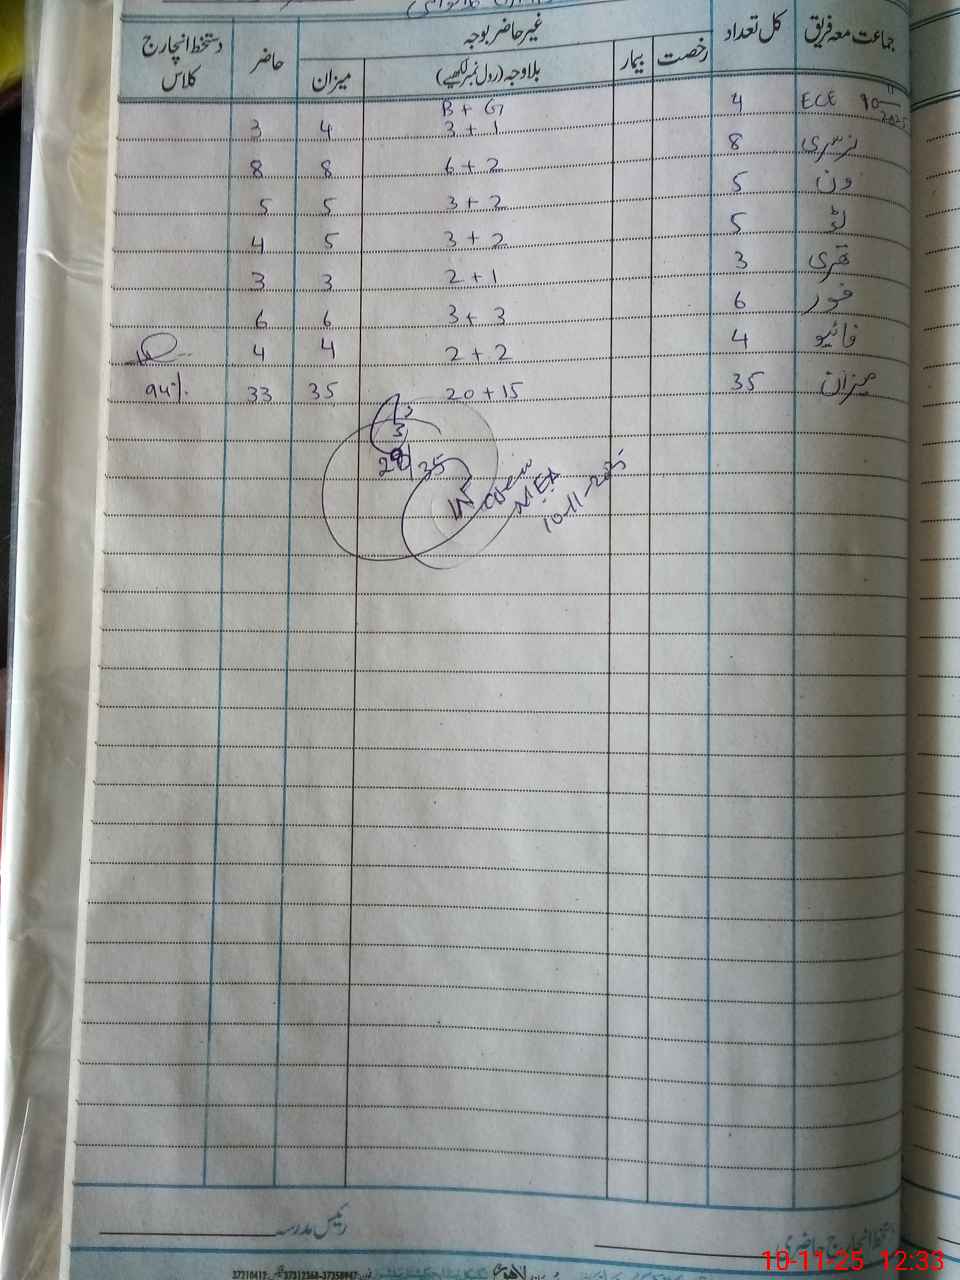 جماعت معہ فریق کل تعداد رخصت بیمار غیر حاضر بوجہ بلاوجہ (رول نمبر لکھیے) میزان حاضر دستخط انچارج کلاس
ECE 10-11-2025 4 B + G
3 + 1 4 3
نرسری 8 6 + 2 8 8
ون 5 3 + 2 5 5
ٹو 5 3 + 2 5 4
تھری 3 2 + 1 3 3
فور 6 3 + 3 6 6
فائیو 4 2 + 2 4 4
میزان 35 20 + 15 35 33 94%
3
35
MEA
10-11-2025
دستخط انچارج حاضری رئیس مدرسہ
37310412 37312368-37358947
10-11-25 12:33